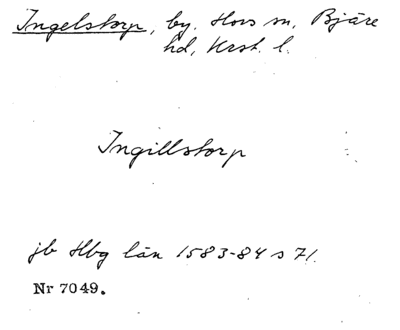 Ingelstorp, by. Hovs sn. Bjäre
hd, Krst. l.
Ingillstorp
jb Hbg län 1583-84 s 71.
Nr 7049.